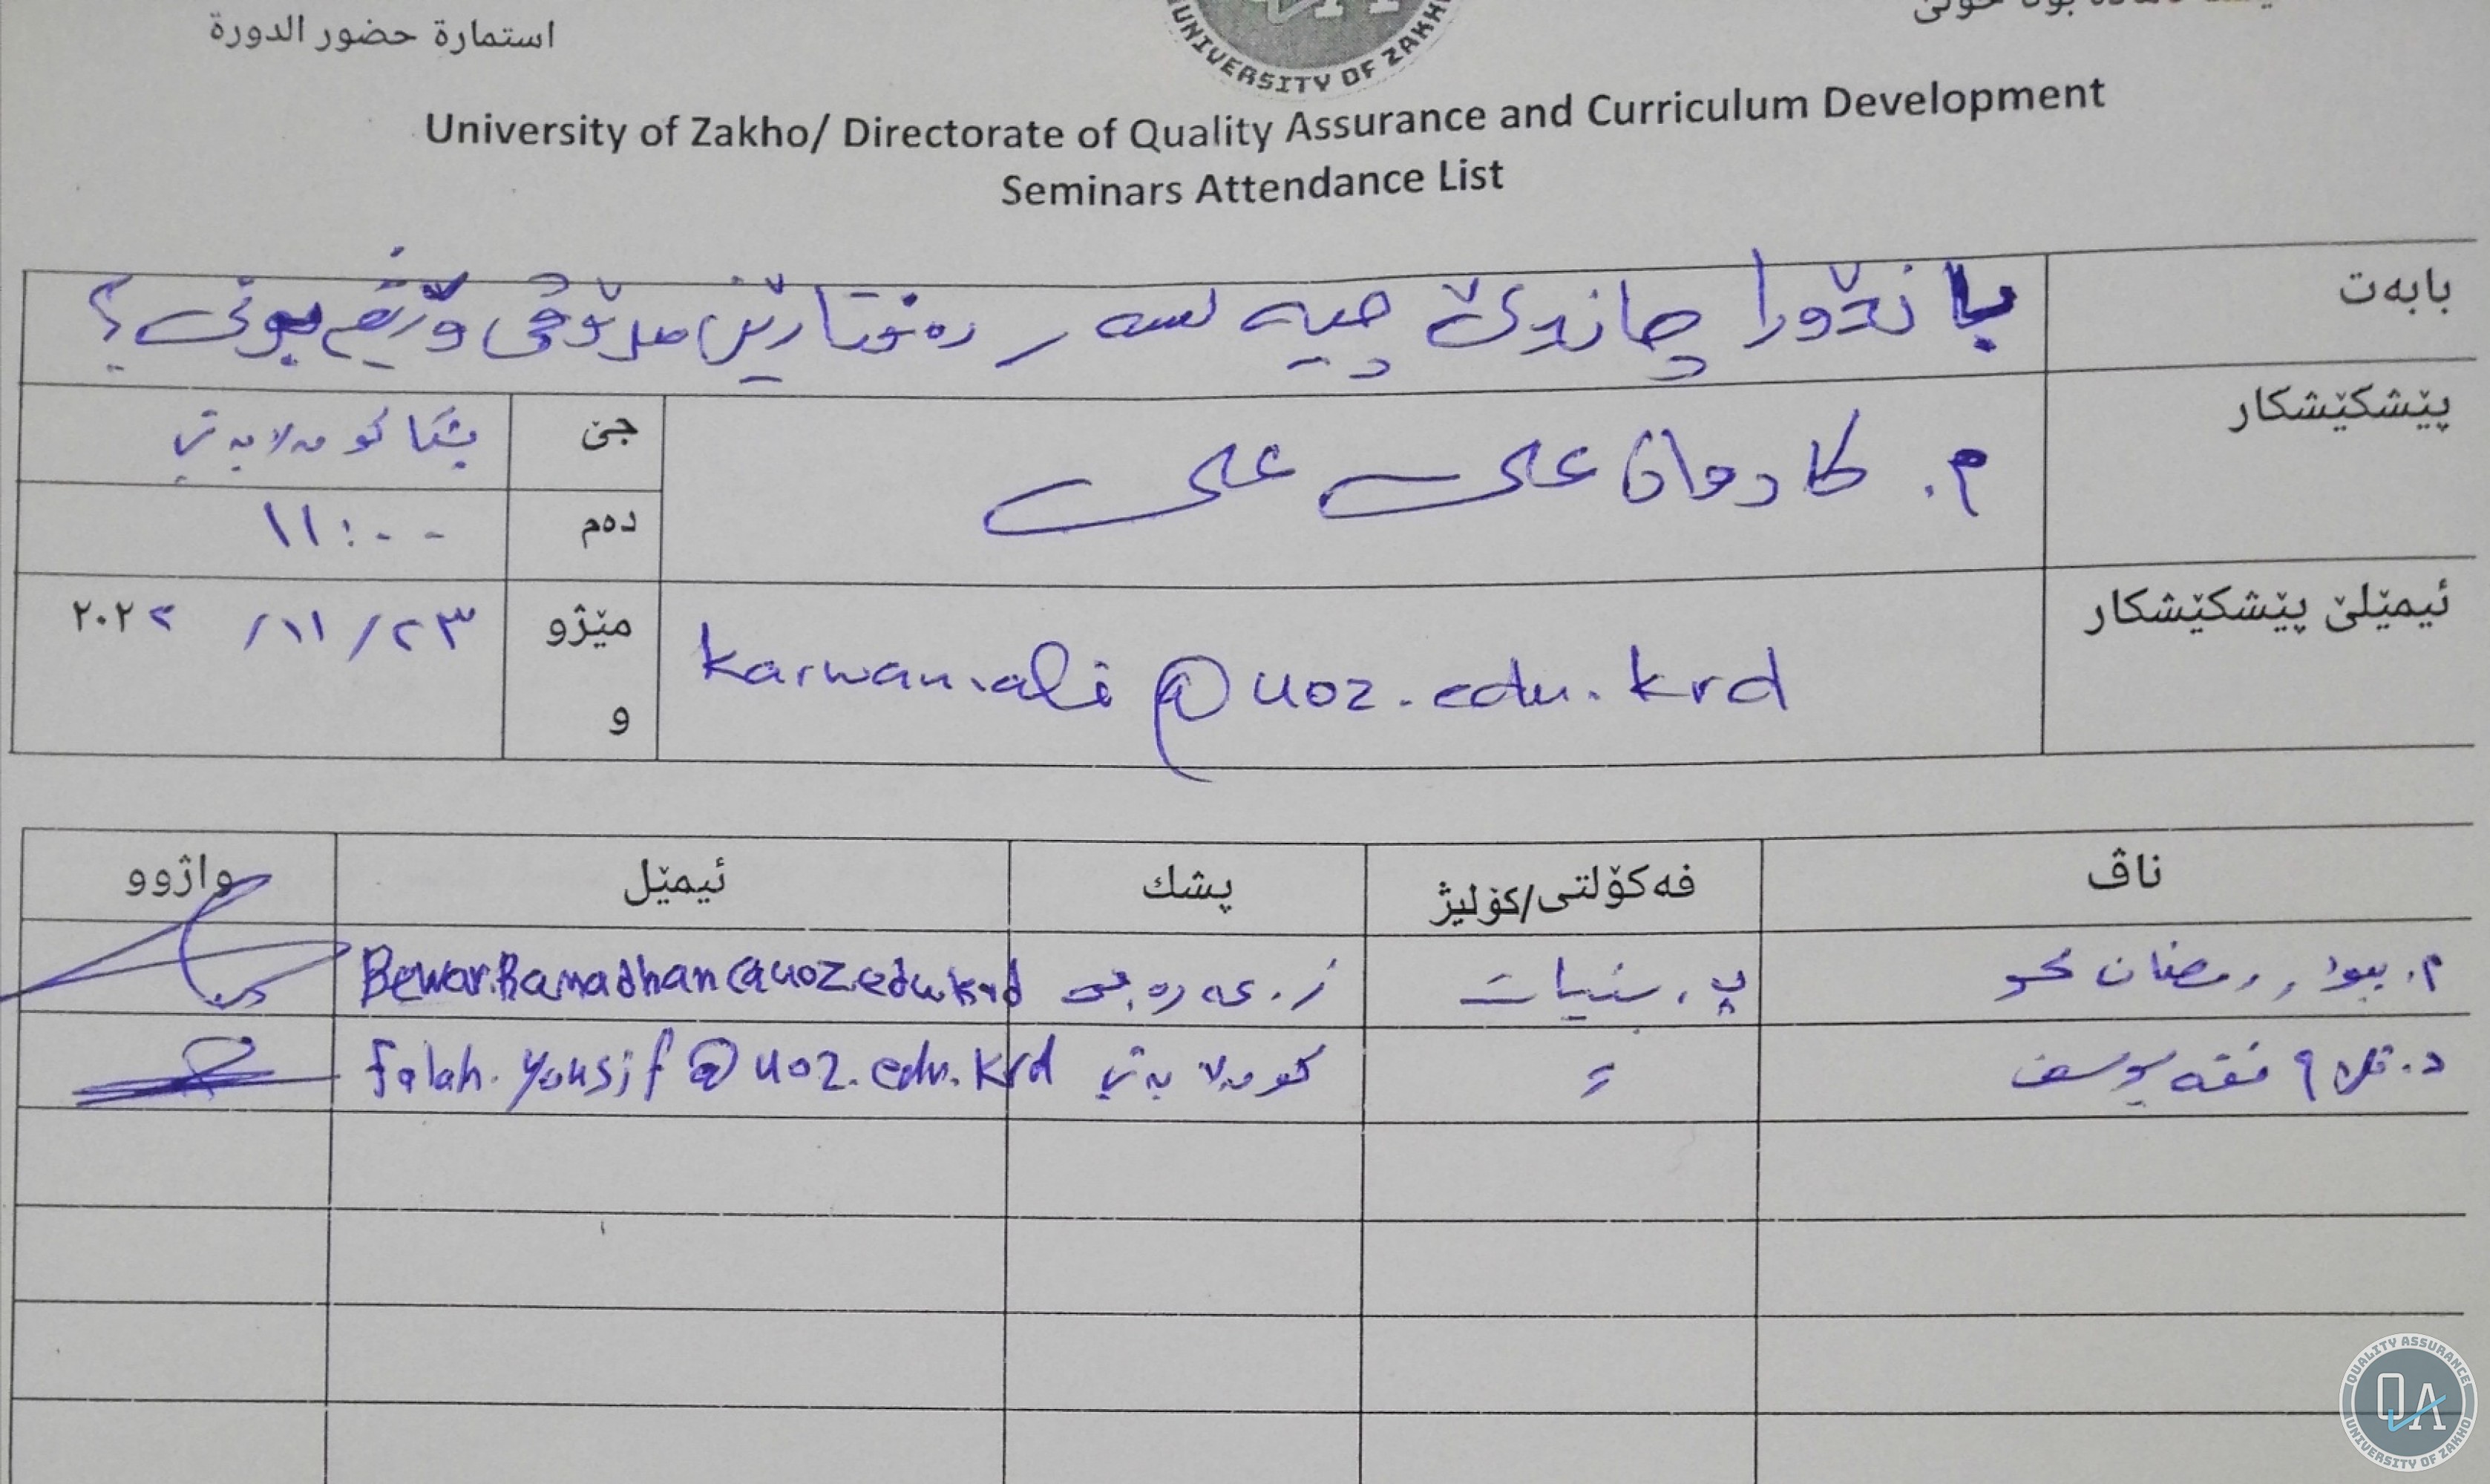 استمارة حضور الدورة
UNIVERSITY OF ZAKHO
University of Zakho/ Directorate of Quality Assurance and Curriculum Development
Seminars Attendance List
بابەت
چاندێ چیە لسەر رەفتارێن مرۆڤی
پێشکێشکار
م. کاروان علی علی
جێ
پشکا کومەلایەتی
دەم
١١:٠٠
ئیمێلێ پێشکێشکار
karwan.ali@uoz.edu.krd
مێژوو
٢٣/١١/ ٢٠٢٢
ناڤ فەکۆلتی/کۆلیژ پشك ئیمێل واژوو
م. بیوار رمضان پ. بنیات ز. عەرەبی Bewar.Ramadhan@uoz.edu.krd
د. فلاح فقە یوسف کومەلایەتی falah.yousif@uoz.edu.krd
QUALITY ASSURANCE
QA
UNIVERSITY OF ZAKHO